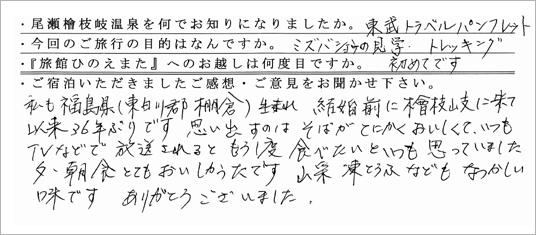 ・尾瀬檜枝岐温泉を何でお知りになりましたか。東武トラベルパンフレット
・今回のご旅行の目的はなんですか。ミズバショウの見学・トレッキング
・『旅館ひのえまた』へのお越しは何度目ですか。初めてです
・ご宿泊いただきましたご感想・ご意見をお聞かせ下さい。
私も福島県(東白川郡棚倉)生まれ 結婚前に檜枝岐に来て
以来36年ぶりです 思い出すのはそばがとにかくおいしくて、いつも
TVなどで放送されるともう1度食べたいといつも思っていました
夕・朝食とてもおいしかったです 山菜 凍とうふなどもなつかしい
味です ありがとうございました。